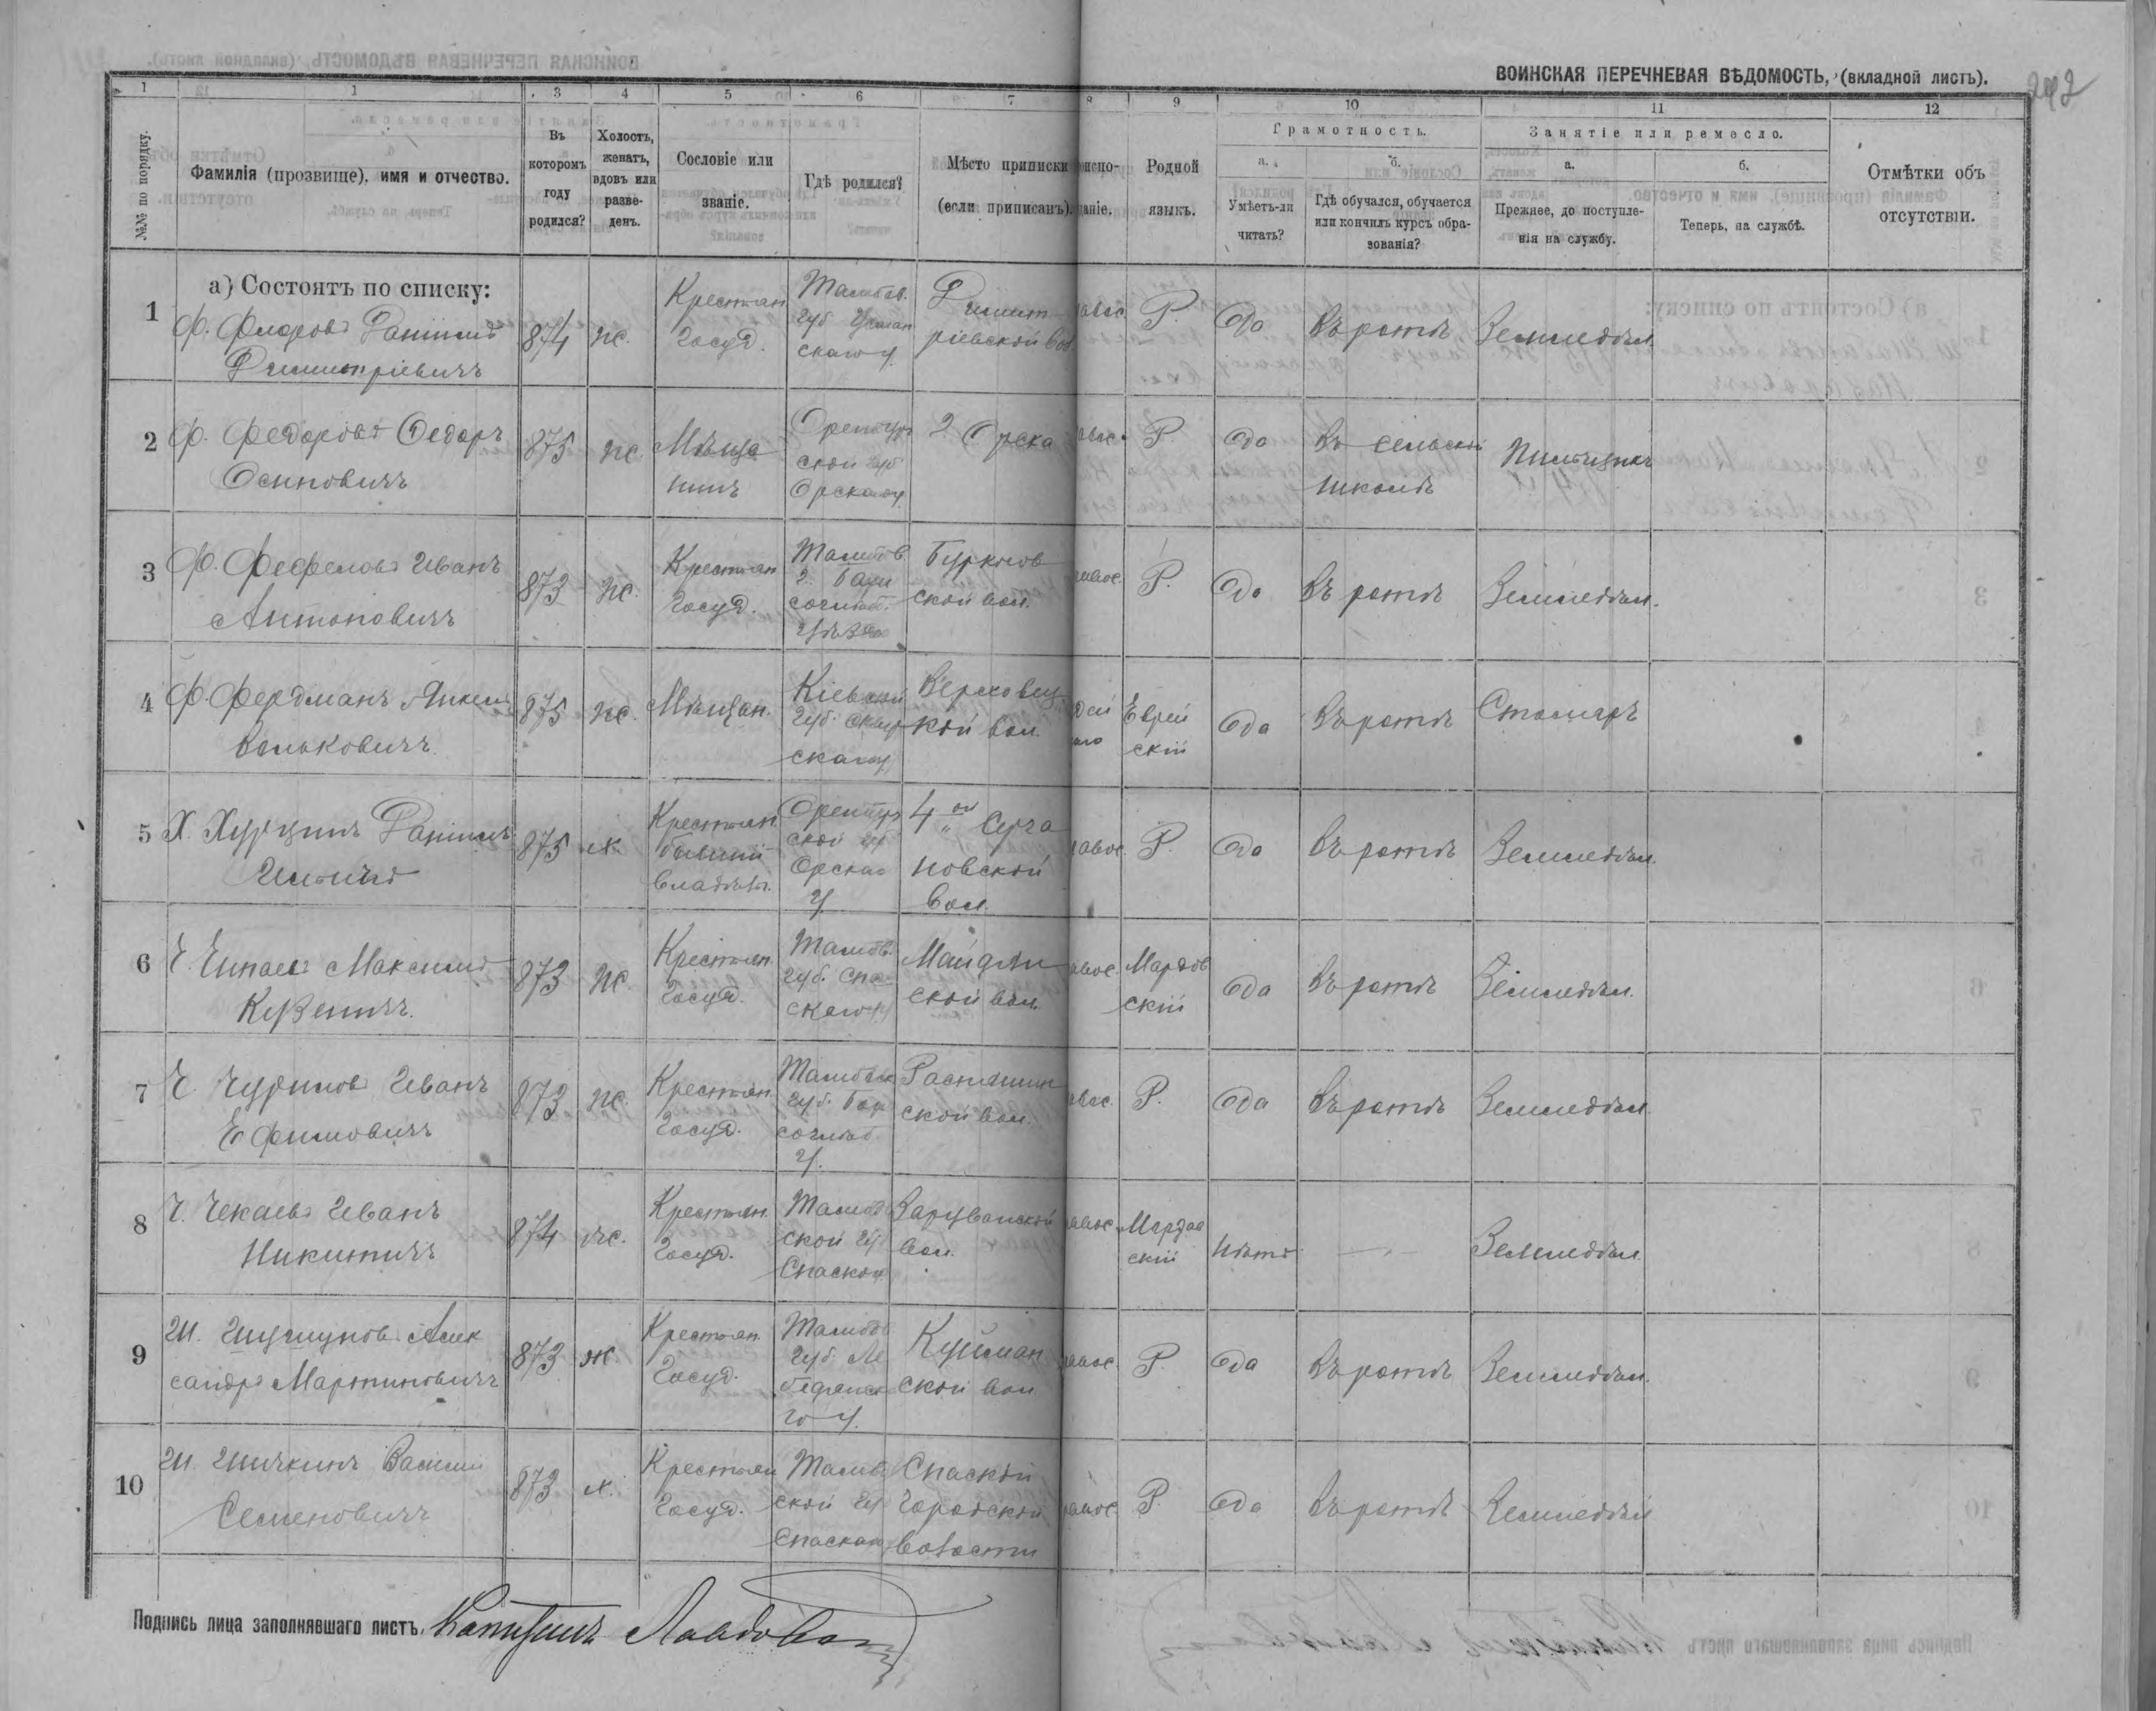 ВОИНСКАЯ ПЕРЕЧНЕВАЯ ВѢДОМОСТЬ, (вкладной листъ).
242
1 1 3 4 5 6 7 8 9 10 11 12
№№ по порядку.
Фамилія (прозвище), имя и отчество.
Въ которомъ году родился?
Холостъ, женатъ, вдовъ или разведенъ.
Сословіе или званіе.
Гдѣ родился?
Мѣсто приписки (если приписанъ).
Родной языкъ.
Грамотность.
а.
Умѣетъ-ли читать?
б.
Гдѣ обучался, обучается или кончилъ курсъ образованія?
Занятіе или ремесло.
а.
Прежнее, до поступленія на службу.
б.
Теперь, на службѣ.
Отмѣтки объ отсутствіи.
а) Состоятъ по списку:
1 Ф. Флоровъ Даніилъ Дмитріевичъ 874 ж. Крестьян Госуд. Тамбов. губ Усман скаго у. Дмит ріевской вол Р. Да Въ ротѣ Земледѣл.
2 Ф. Федоровъ Федоръ Осиповичъ 875 ж Мѣща нинъ Оренбург ской губ Орскаго у. г Орска Р. Да Въ сельской школѣ
3 Ф. Фефеловъ Иванъ Антоновичъ 873 ж. Крестьян Госуд. Тамбов г. Бори согл ѣб. Уѣзда Бурков ской вол. Р. Да Въ ротѣ Земледѣл.
4 Ф. Фердманъ Янкель Вольковичъ 875 ж. Мѣщан. Кіевской губ. Сквир скаго у Верховец кой вол. Еврей скій Да Въ ротѣ Столяръ
5 Х. Хурцинъ Даніилъ Ильичъ 875 х. Крестьян. бывший владѣл. Оренбург ской губ Орскаго у 4ой Сурча новской вол. Р. Да Въ ротѣ Земледѣл.
6 Ч. Чипаевъ Максимъ Кузьмичъ. 873 ж. Крестьян. Госуд. Тамбов. губ. Спа скаго у Майдан ской вол. Мордов скій Да Въ ротѣ Земледѣл.
7 Ч. Чуриловъ Иванъ Ефимовичъ 873 ж. Крестьян. Госуд. Тамбовск губ. Бор согл ѣб у. ской вол. Р. Да Въ ротѣ Земледѣл.
8 Ч. Чекаевъ Иванъ Никитичъ 874 ж. Крестьян. Госуд. Тамбов ской гу Спаскаго у Зарубанской вол. Мордов скій Нѣтъ — Земледѣл.
9 Ш. Шушуновъ Алек сандръ Мартиновичъ 873 ж. Крестьян. Госуд. Тамбов губ. Ле бедянска го у. Куйман ской вол Р. Да Въ ротѣ Земледѣл.
10 Ш. Шичкинъ Василий Семеновичъ 873 х. Крестьян Госуд. Тамбов ской гу Спаскаго у Спаской Городской волости Р. Да Въ ротѣ Земледѣл
Подпись лица заполнявшаго листъ. Капитанъ